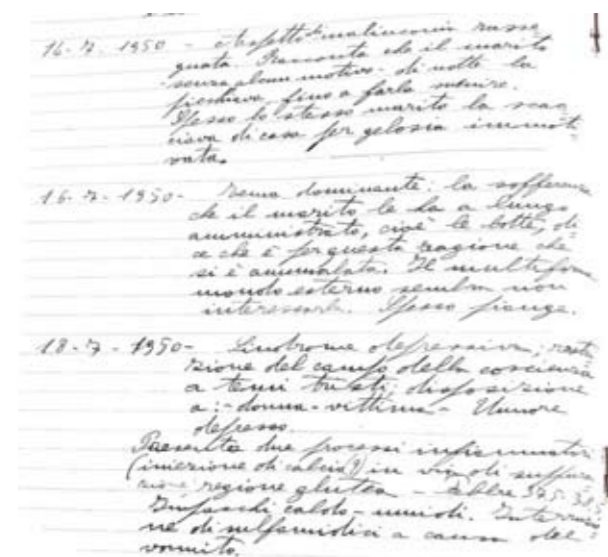 16-7-1950 - Aspetto di malinconia rasse
gnata. Racconta che il marito
senza alcun motivo - di notte la
picchiava, fino a farla svenire.
Spesso lo stesso marito la scac
ciava di casa per gelosia immoti
vata.
16-7-1950 - Tema dominante: la sofferenza
che il marito le ha a lungo
amministrato, cioè le botte; di=
ce che è per questa ragione che
si è ammalata. Il multiforme
mondo esterno sembra non
interessarla. Spesso piange.
18-7-1950 - Sindrome depressiva; restri
zione del campo della coscienza
a temi tristi, disposizione
a: - donna - vittima - Umore
depresso.
Presenta due processi infiammatori
(iniezione di calcio?) in via di suppura
zione regione glutea - Febbre 37,5
Impacchi caldo-umidi. Interruzio
ne di sulfamidici a causa del
vomito.